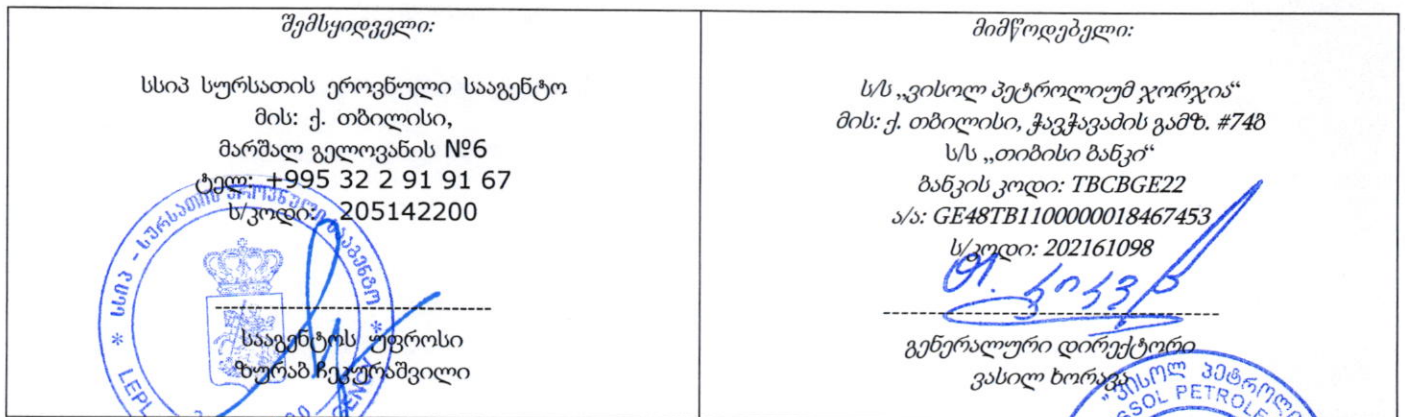 შემსყიდველი:
სსიპ სურსათის ეროვნული სააგენტო
მის: ქ. თბილისი,
მარშალ გელოვანის №6
ტელ: +995 32 2 91 91 67
ს/კოდი: 205142200
სააგენტოს უფროსი
ზურაბ ჩეკურაშვილი
სსიპ - სურსათის ეროვნული სააგენტო
LEPL
მიმწოდებელი:
ს/ს „ვისოლ პეტროლიუმ ჯორჯია“
მის: ქ. თბილისი, ჭავჭავაძის გამზ. #74ბ
ს/ს „თიბისი ბანკი“
ბანკის კოდი: TBCBGE22
ა/ა: GE48TB1100000018467453
ს/კოდი: 202161098
გენერალური დირექტორი
ვასილ ხორავა